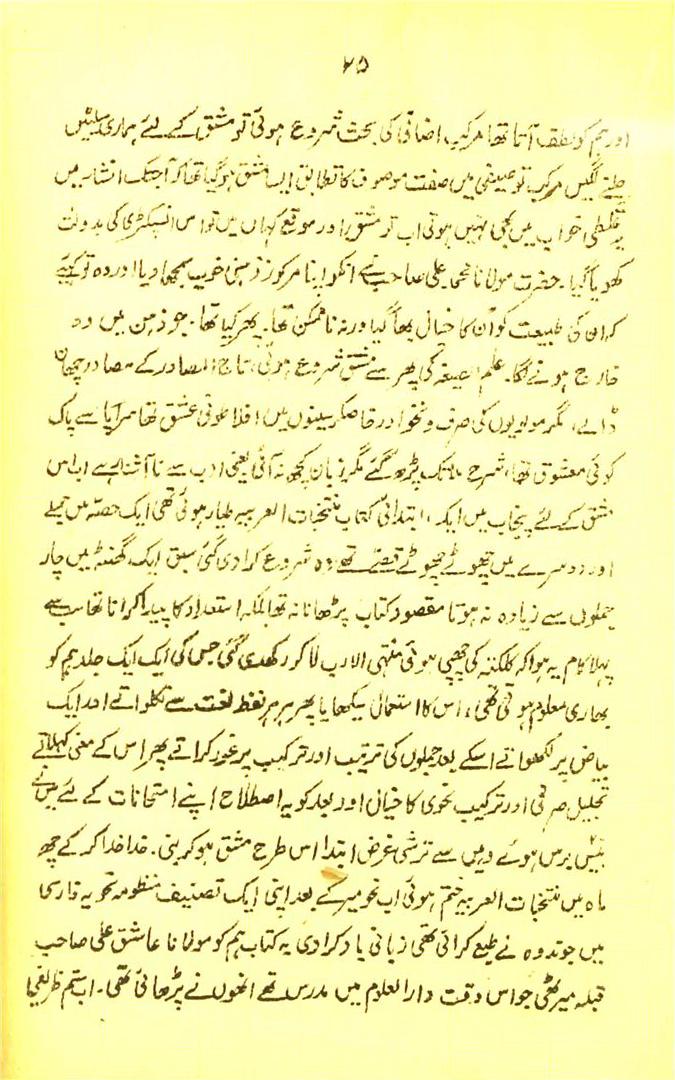 ۲۵
اور ہم کو لطف آتا تھا مرکب اضافی کی بحث شروع ہوئی تو مشق کے لئے ہماری سلیٹیں
چلنے لگیں مرکب توصیفی میں صفت موصوف کا تطابق ایسا مشق ہو گیا تھا کہ آجتک انشار میں
یہ غلطی خواب میں بھی نہیں ہوتی اب تو مشق اور موقع کہاں میں تو اس انسپکٹری کی بدولت
کھو دیا گیا۔ حضرت مولانا محمد علی صاحب نے انکو اپنا مرکوز ذہنی خوب سمجھا دیا اور وہ تو کہیے
کہ ان کی طبیعت کو ان کا خیال بھا گیا ورنہ ناممکن تھا۔ پھر کیا تھا۔ جو ذہن میں وہ
خارج ہونے لگا۔ علم الصیغہ کی پھر سے مشق شروع ہوئی، تاج المصادر کے مصادر چھان
ڈالے، مگر مولویوں کی صرف و نحو اور خاصکر سینوں میں افلاطونی عشق تھا سراپا سے پاک
کوئی معشوق تھا، شرح ملا تک پڑھ گئے مگر زبان کچھ نہ آئی یعنی ادب سے نا آشنا رہے اب اس
مشق کے لئے پنجاب میں ایک ابتدائی کتاب منتخبات العربیہ طیار ہوئی تھی ایک حصہ میں جملے
اور دوسرے میں چھوٹے چھوٹے قصے تھے وہ شروع کرا دی گئی سبق ایک گھنٹہ میں چار
جملوں سے زیادہ نہ ہوتا مقصود کتاب پڑھانا نہ تھا بلکہ استعداد کا پیدا کرانا تھا سب سے
پہلا کام یہ ہوا کہ کلکتہ کی چھپی ہوئی منتہی الارب لا کر رکھدی گئی جس کی ایک ایک جلد ہم کو
بھاری معلوم ہوتی تھی، اس کا استعمال سکھایا پھر ہر ہر لفظ لغت سے نکلواتے اور ایک
بیاض پر لکھواتے اسکے بعد جملوں کی ترتیب اور ترکیب پر غور کراتے پھر اس کے معنی کہلاتے
تحلیل صرفی اور ترکیب نحوی کا خیال اور بعد کو یہ اصطلاح اپنے امتحانات کے لئے میں نے
بتیس برس ہوئے وہیں سے تراشی غرض ابتدا اس طرح مشق ہو کر بنی۔ خدا خدا کر کے چھ
ماہ میں منتخبات العربیہ ختم ہوئی اب نحو میر کے بعد اپنی ایک تصنیف منظومہ نحویہ فارسی
میں جو ندوہ نے طبع کرائی تھی زبانی یاد کرا دی یہ کتاب ہم کو مولانا عاشق علی صاحب
قبلہ میرٹھی جو اس وقت دارالعلوم میں مدرس تھے انھوں نے پڑھائی تھی۔ اب ستم ظریفی